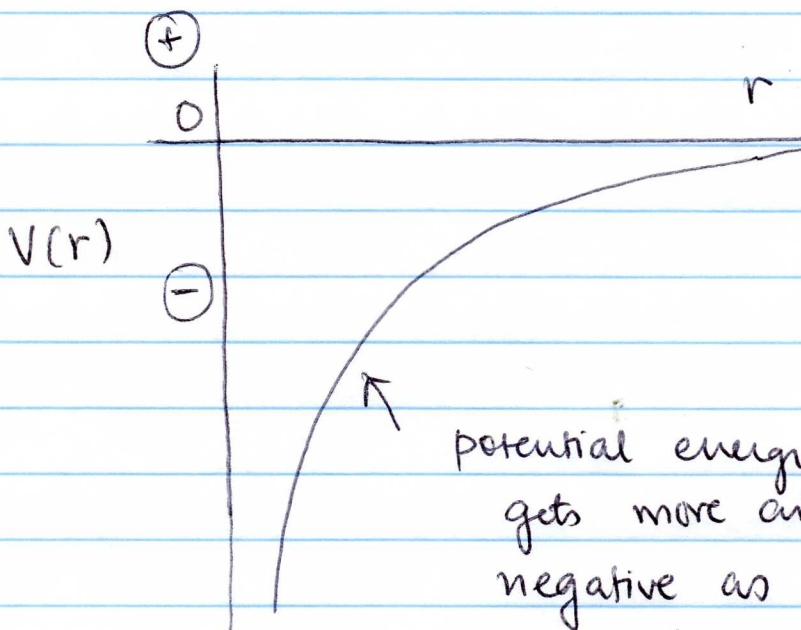 +
r
0
V(r)
−
potential energy
gets more an
negative as